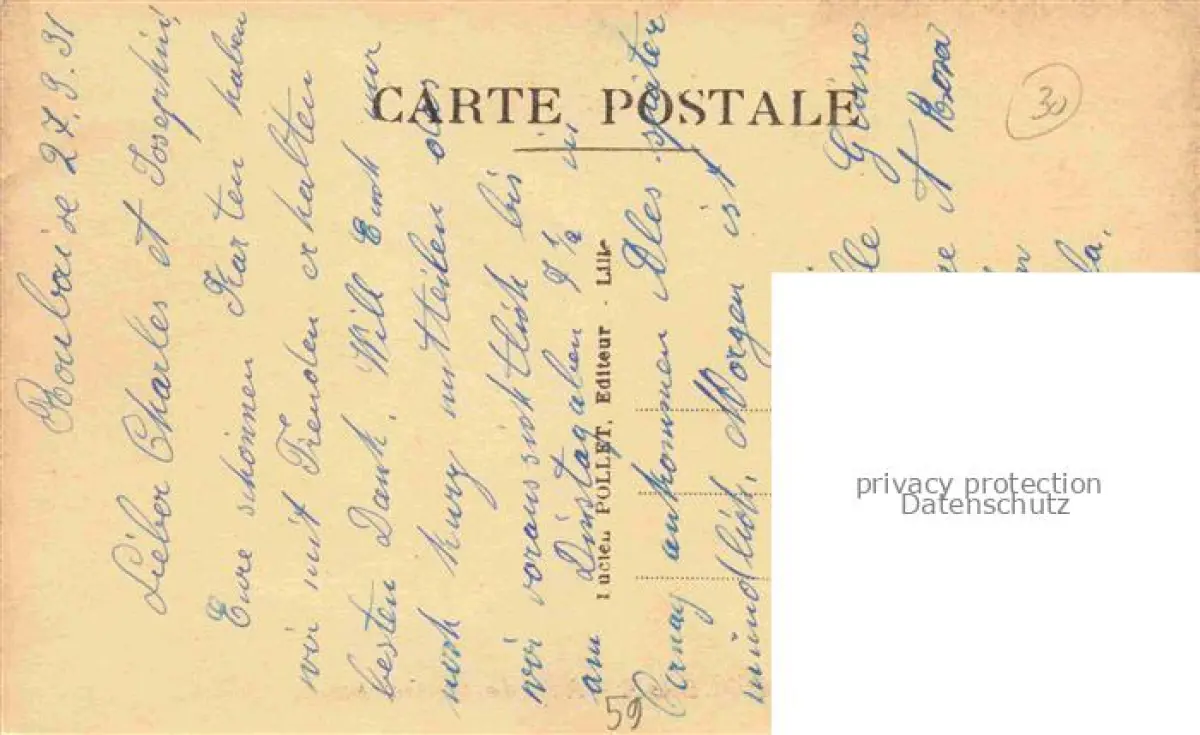 CARTE POSTALE
30
Roubaise 27.9.31
Lieber Charles et Josephin,
Eure schönnen Karten haben
wir mit Freuden erhalten
besten Dank. Will Euch nur
noch kurz mitteilen das
wir voraussichtlich bis
am Dinstag aben 9 1/2 in
Cernay ankommen Alles später
mündlich, Morgen ist
lle Grüsse
A Rosa
Lucien POLLET, Editeur - Lille
59
privacy protection
Datenschutz